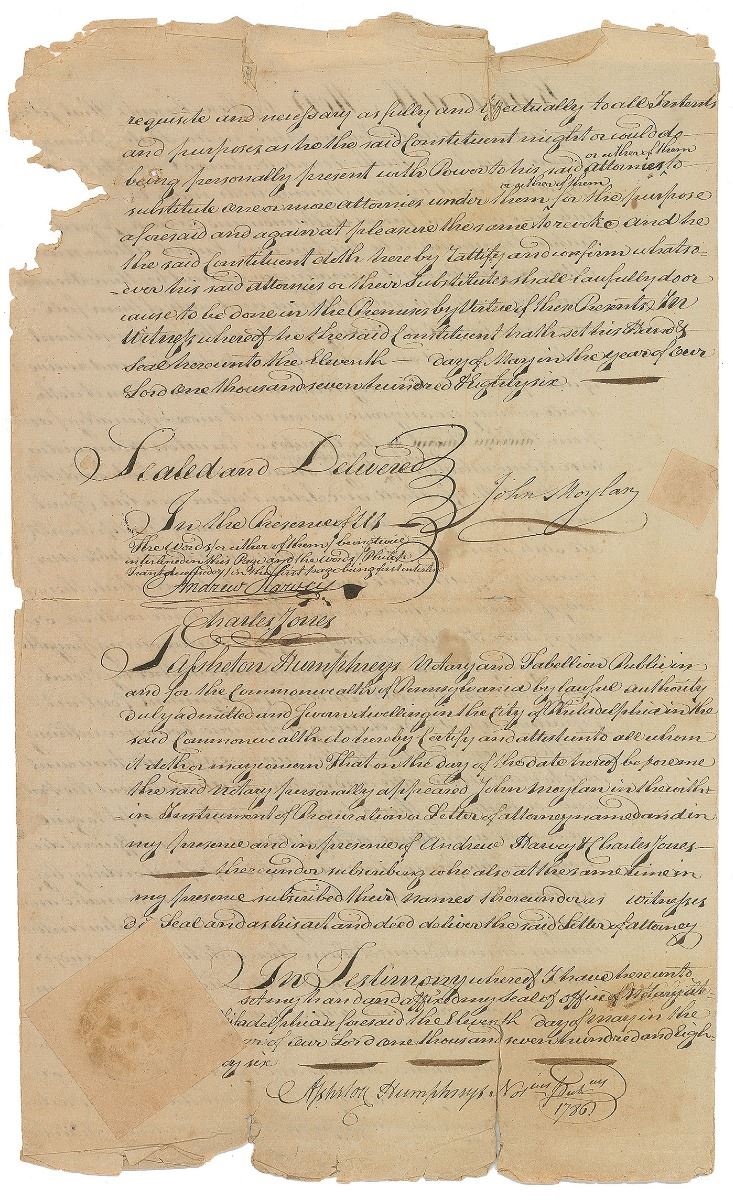 requisite and necessary as fully and Effectually to all Intents
and purposes as he the said Constituent might or could do
or either of them
being personally present with Power to his said Attornies to
or either of them
substitute one or more attornies under them for the purpose
aforesaid and again at pleasure the same to revoke And he
the said Constituent doth hereby rattify and confirm whatso-
-ever his said Attornies or their Substitutes shall lawfully do or
cause to be done in the Premises by Virtue of these Presents, In
Witness whereof he the said Constituent hath set his Hand &
Seal hereunto the Eleventh — day of May in the year of our
Lord one thousand seven hundred & Eighty six
Sealed and Delivered
John Moylan
In the Presence of Us
The Words or either of them being twice
interlined in this Page and the words
in the first page being first
Andrew Harvey
Charles Jones
I Assheton Humphreys Notary and Tabellion Public in
and for the Commonwealth of Pennsylvania by lawful authority
duly admitted and sworn dwelling in the City of Philadelphia in the
said Commonwealth do hereby Certify and attest unto all whom
it doth or may concern That on the day of the date hereof before me
the said Notary personally appeared John Moylan in the with-
in Instrument of Procuration or Letter of attorney named and in
my presence and in presence of Andrew Harvey & Charles Jones —
thereunder subscribing who also at the same time in
my presence subscribed their Names thereunder as Witnesses
did Seal and as his act and deed deliver the said Letter of attorney
In Testimony whereof I have hereunto
set my hand and affixed my Seal of office of Notary at
Philadelphia aforesaid the Eleventh day of May in the
of our Lord one thousand seven hundred and Eigh-
ty six
Assheton Humphreys Not ius Pub cus
1786